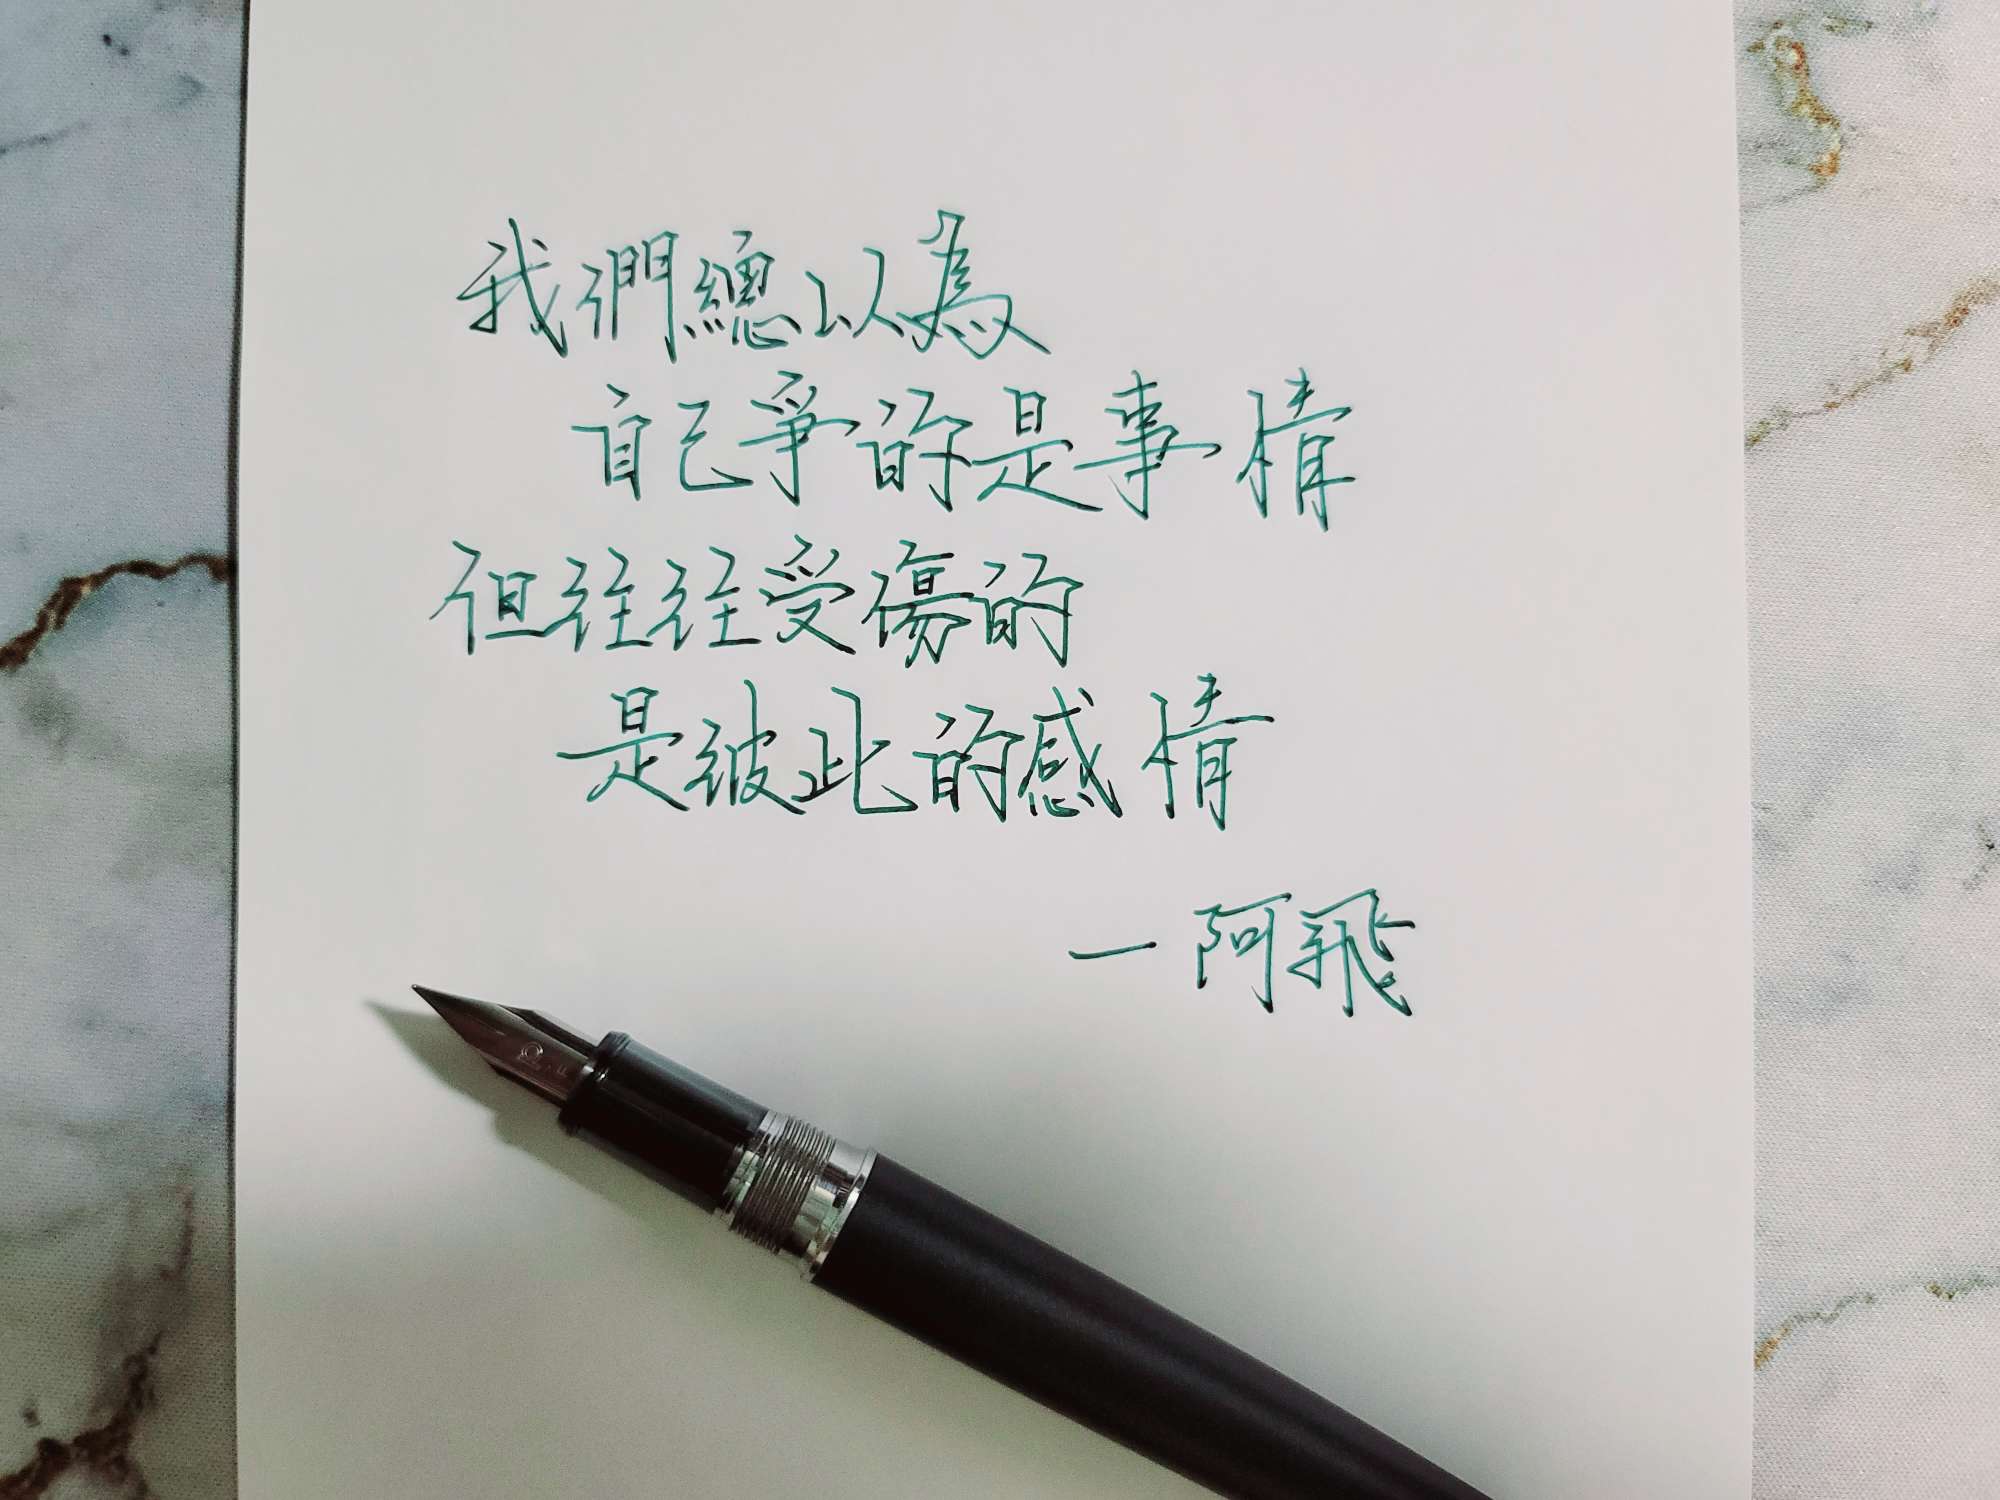 我們總以為
自己爭的是事情
但往往受傷的
是彼此的感情
—阿飛